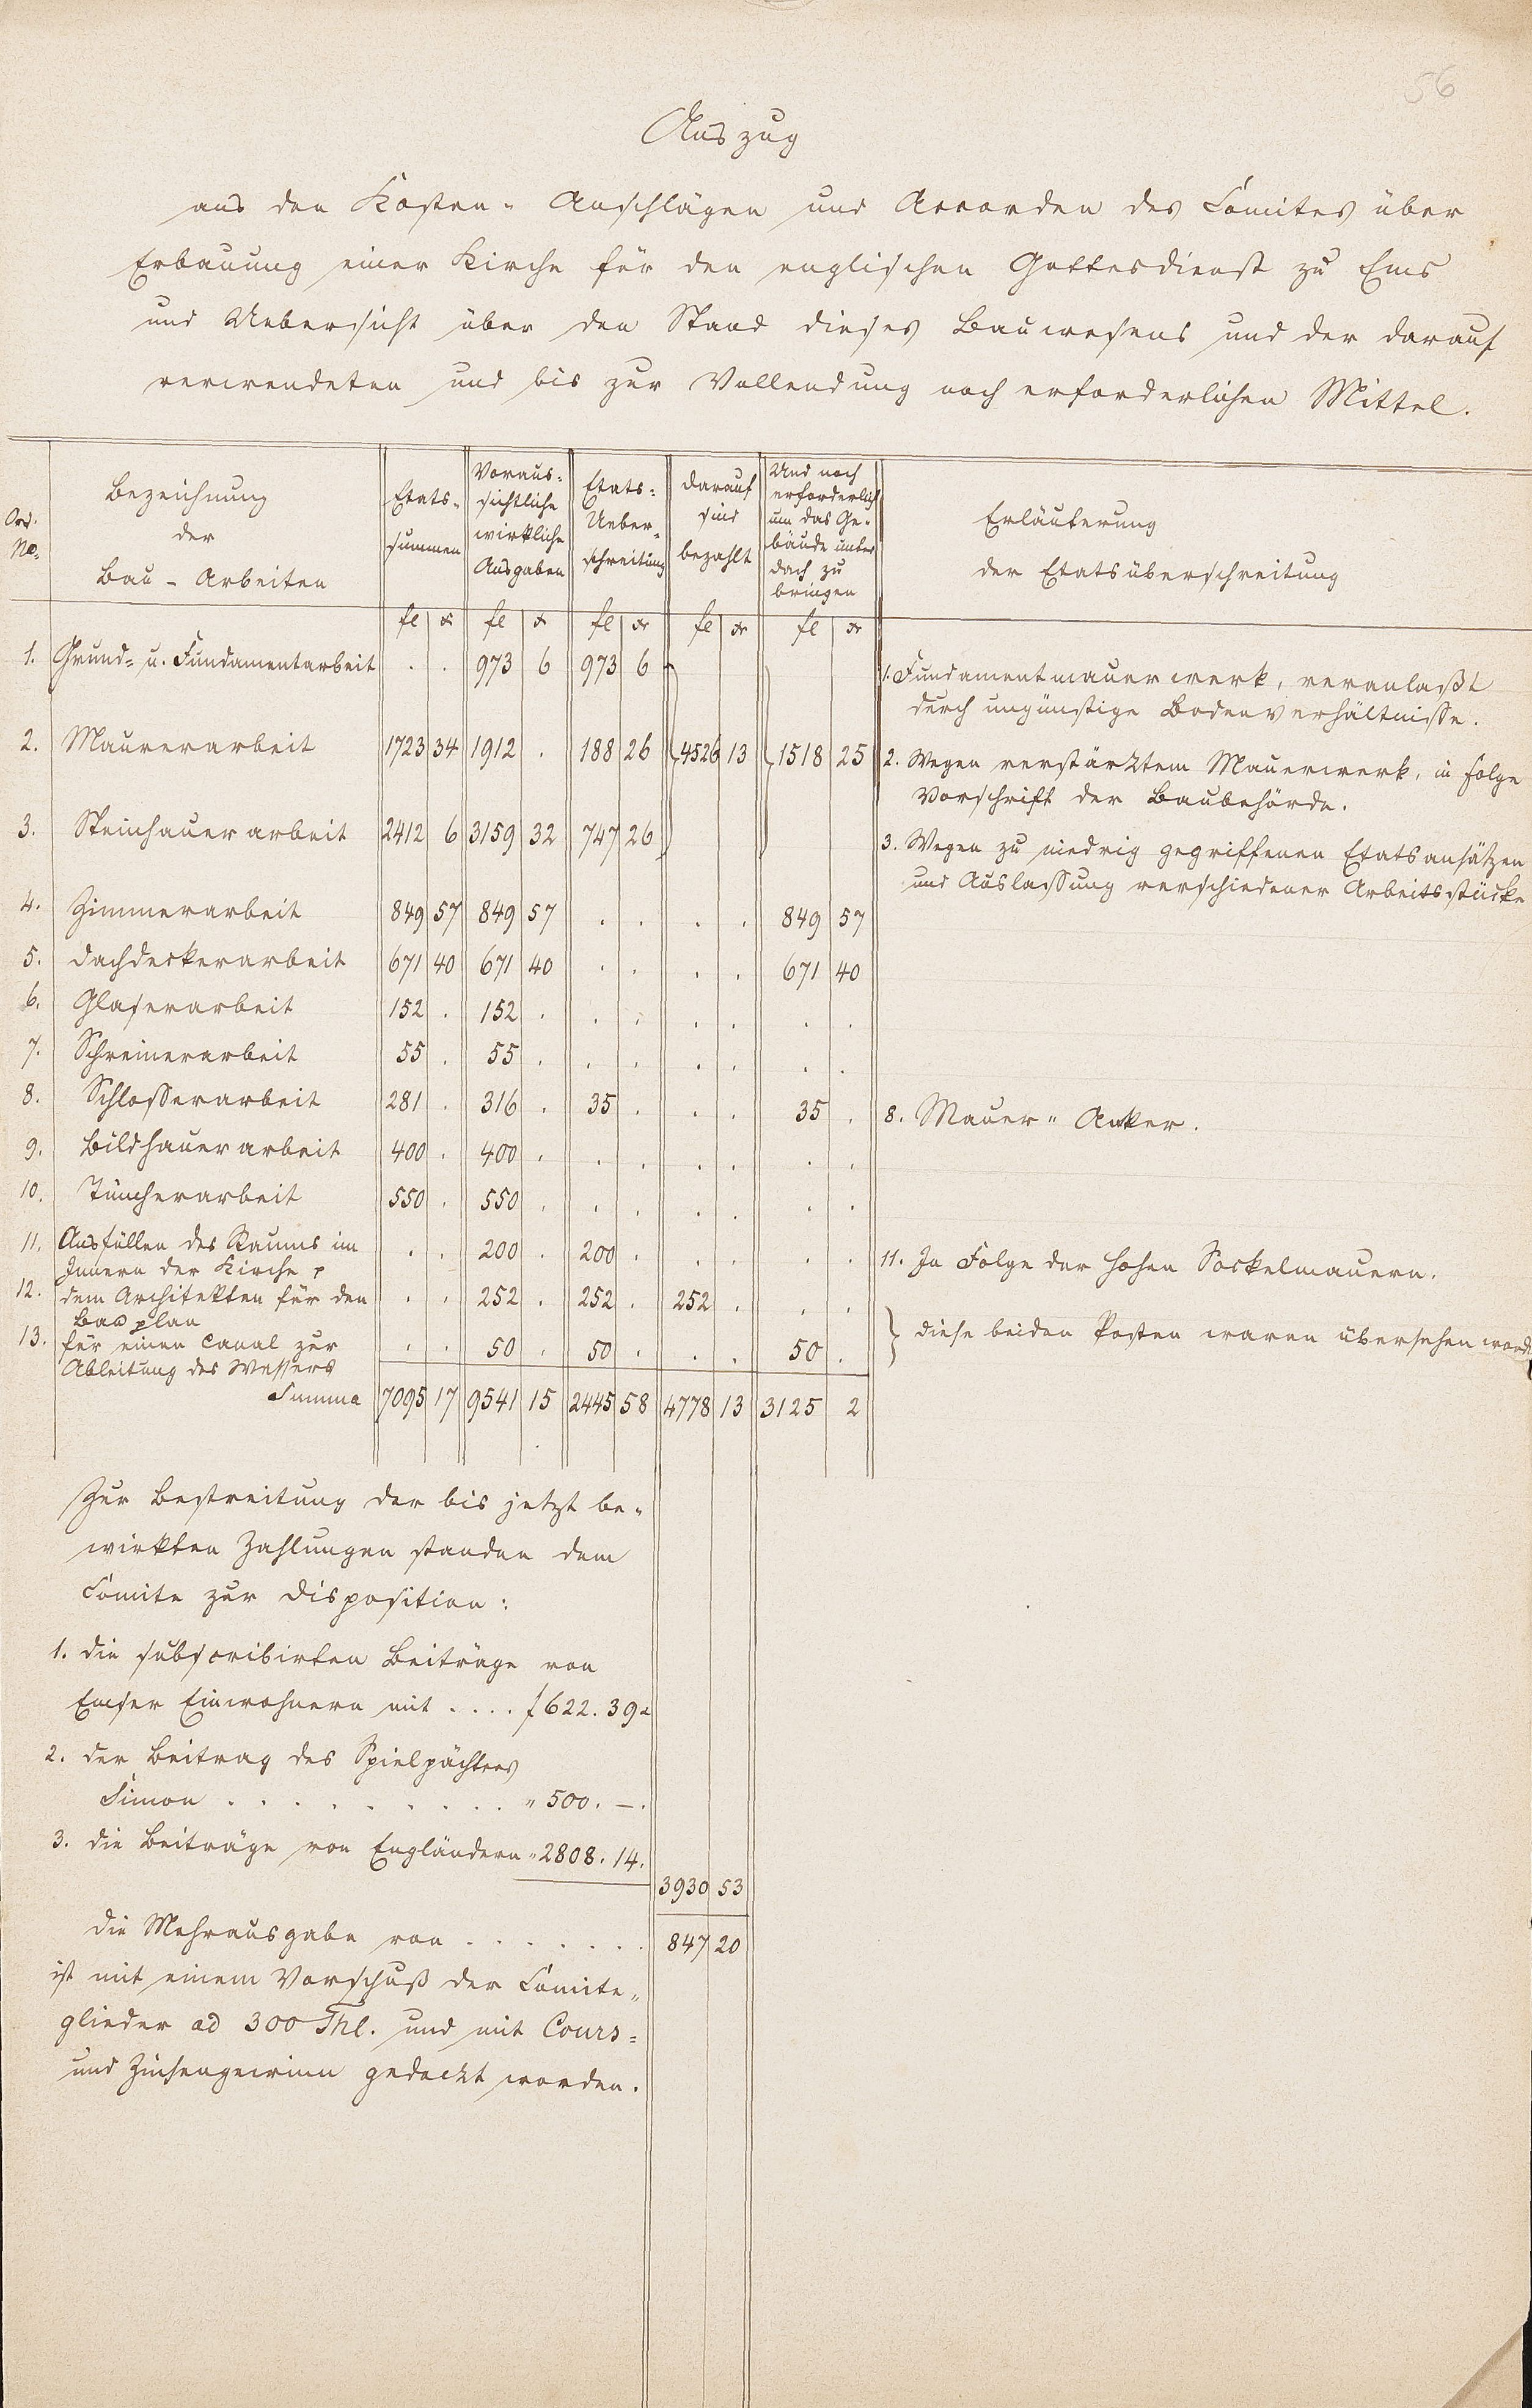 56
Auszug
aus den Kosten- Anschlägen und Accorden des Comites über
Erbauung einer Kirche für den englischen Gottesdienst zu Ems
und Uebersicht über den Stand dieses Bauwesens und der darauf
verwendeten und bis zur Vollendung noch erforderlichen Mittel.
Ord. No. | Bezeichnung der Bau-Arbeiten | Etats-summen | Voraus-sichtliche wirkliche Ausgaben | Etats-Ueber-schreitung | darauf sind bezahlt | Und noch erforderlich um das Ge-bäude unter Dach zu bringen | Erläuterung der Etatsüberschreitung
fl | xr | fl | xr | fl | xr | fl | xr | fl | xr
1. Grund- u. Fundamentarbeit | . | . | 973 | 6 | 973 | 6 | 1. Fundamentmauerwerk, veranlaßt
durch ungünstige Bodenverhältnisse.
2. Maurerarbeit | 1723 | 34 | 1912 | . | 188 | 26 | 4526 | 13 | 1518 | 25 | 2. Wegen verstärktem Mauerwerk, in Folge
Vorschrift der Baubehörde.
3. Steinhauerarbeit | 2412 | 6 | 3159 | 32 | 747 | 26 | 3. Wegen zu niedrig gegriffenen Etatsansätzen
und Auslassung verschiedener Arbeitsstücke
4. Zimmerarbeit | 849 | 57 | 849 | 57 | . | . | . | . | 849 | 57
5. Dachdeckerarbeit | 671 | 40 | 671 | 40 | . | . | . | . | 671 | 40
6. Glaserarbeit | 152 | . | 152 | . | . | . | . | . | . | .
7. Schreinerarbeit | 55 | . | 55 | . | . | . | . | . | . | .
8. Schlosserarbeit | 281 | . | 316 | . | 35 | . | . | . | 35 | . | 8. Mauer- Anker.
9. Bildhauerarbeit | 400 | . | 400 | . | . | . | . | . | . | .
10. Tüncherarbeit | 550 | . | 550 | . | . | . | . | . | . | .
11. Ausfüllen des Raums im
Innern der Kirche p | . | . | 200 | . | 200 | . | . | . | . | . | 11. In Folge der hohen Sockelmauern.
12. dem Architekten für den
Bauplan | . | . | 252 | . | 252 | . | 252 | . | . | . | diese beiden Posten waren übersehen
13. für einen Canal zur
Ableitung des Wassers | . | . | 50 | . | 50 | . | . | . | 50 | .
Summa | 7095 | 17 | 9541 | 15 | 2445 | 58 | 4778 | 13 | 3125 | 2
Zur Bestreitung der bis jetzt be-
wirkten Zahlungen standen dem
Comite zur Disposition:
1. die subscribirten Beiträge von
Emser Einwohnern mit .... f 622. 39 xr
2. der Beitrag des Spielpächters
Simon .......... " 500. –.
3. die Beiträge von Engländern " 2808. 14.
3930 | 53
die Mehrausgabe von ....... | 847 | 20
ist mit einem Vorschuß der Comite-
glieder ad 300 Thl. und mit Cours-
und Zinsengewinn gedeckt worden.